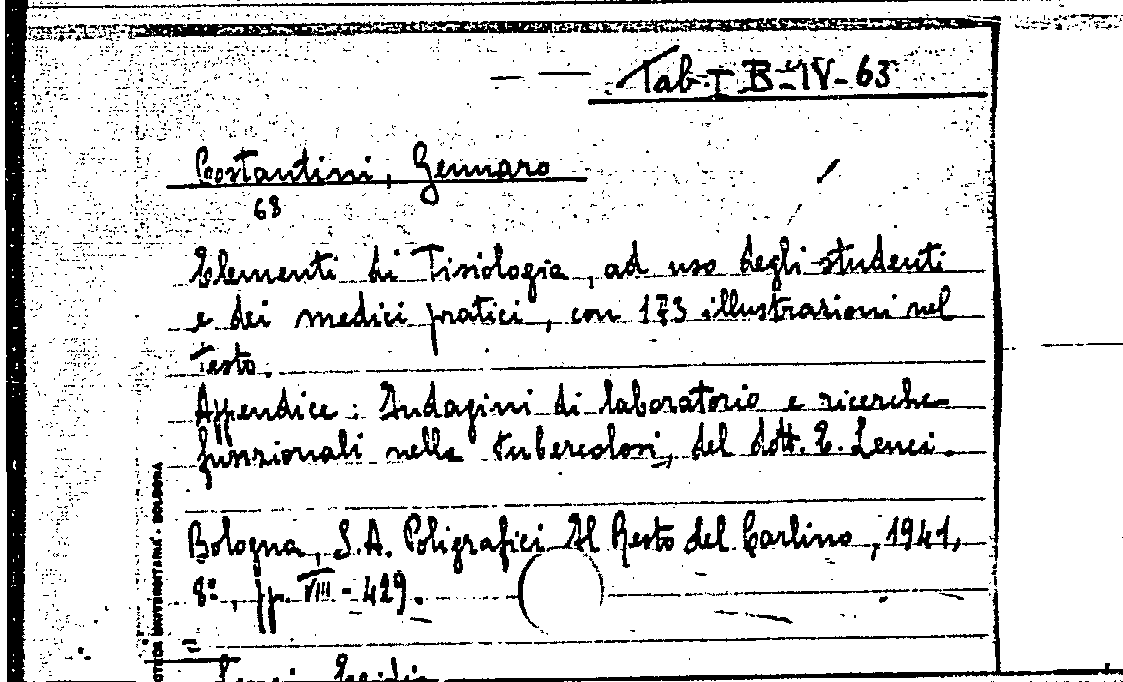 Tab. I B-IV-63
Costantini, Gennaro
68
Elementi di Tisiologia, ad uso degli studenti
e dei medici pratici, con 173 illustrazioni nel
Testo.
Appendice: Indagini di laboratorio e ricerche
funzionali nella tubercolosi, del dott. E. Lenci.
Bologna, S.A. Poligrafici Il Resto del Carlino, 1941,
8º, pp. VIII-429.
Lenci
OTECA UNIVERSITARIA - BOLOGNA